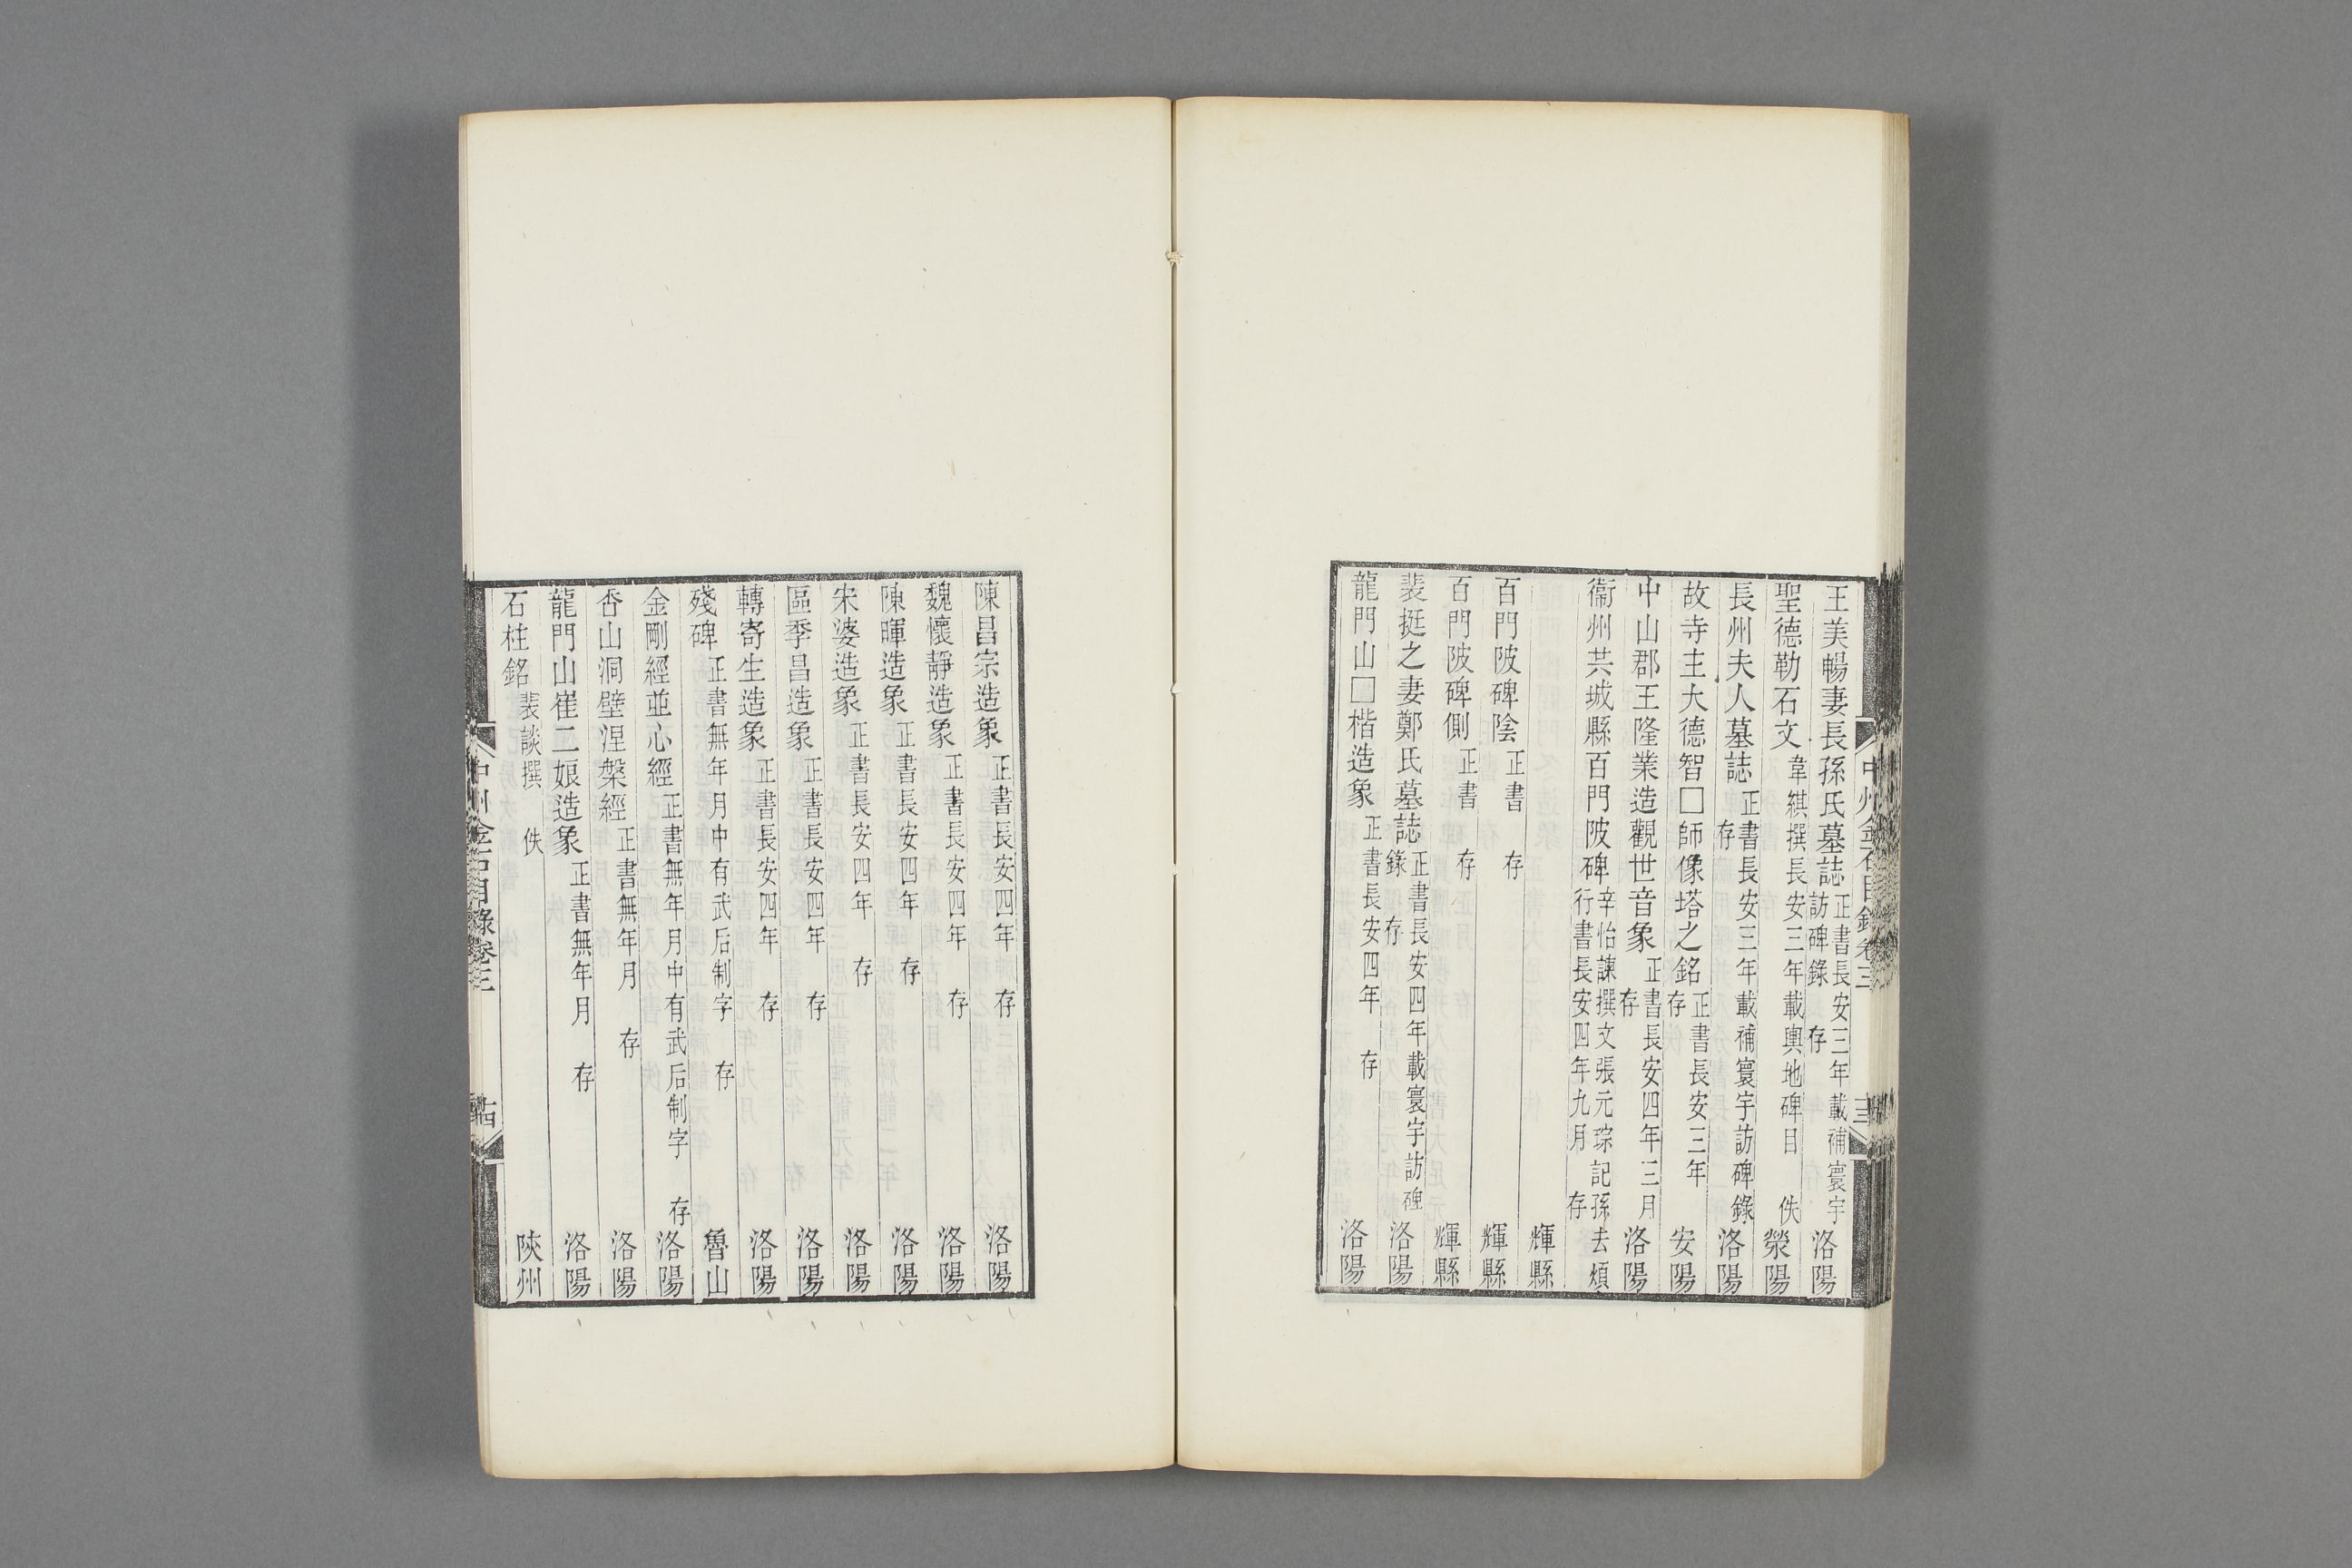 王美暢妻長孫氏墓誌 正書長安三年載補寰宇訪碑錄 存 洛陽
聖德勒石文 韋縯撰長安三年載輿地碑目 佚 滎陽
長州夫人墓誌 正書長安三年載補寰宇訪碑錄 存 洛陽
故寺主大德智□師像塔之銘 正書長安三年 存 安陽
中山郡王隆業造觀世音象 正書長安四年三月 存 洛陽
衞州共城縣百門陂碑 辛怡諫撰文張元琮記孫去煩行書長安四年九月 存
輝縣
百門陂碑陰 正書 存 輝縣
百門陂碑側 正書 存 輝縣
裴挺之妻鄭氏墓誌 正書長安四年載寰宇訪碑錄 存 洛陽
龍門山□楷造象 正書長安四年 存 洛陽
中州金石目錄卷三
陳昌宗造象 正書長安四年 存 洛陽
魏懷靜造象 正書長安四年 存 洛陽
陳暉造象 正書長安四年 存 洛陽
宋婆造象 正書長安四年 存 洛陽
區季昌造象 正書長安四年 存 洛陽
轉寄生造象 正書長安四年 存 洛陽
殘碑 正書無年月中有武后制字 存 魯山
金剛經並心經 正書無年月中有武后制字 存 洛陽
杏山洞壁涅槃經 正書無年月 存 洛陽
龍門山崔二娘造象 正書無年月 存 洛陽
石柱銘 裴談撰 佚 陝州
中州金石目錄卷三